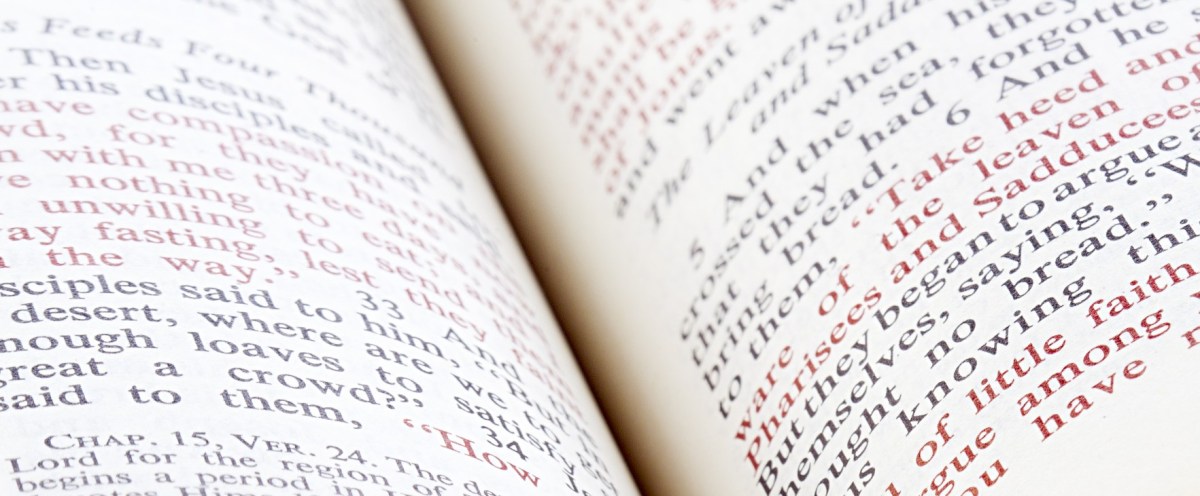 s Feeds Four Thous
Then Jesus calling
er his disciples
have compassion
wd, for they have
n with me three days
ve nothing to eat,
unwilling to send
way fasting, lest they
the way.” 33 And
sciples said to him, “But
desert, where are we to
nough loaves to satisfy
great a crowd?” 34
said to them, “How
CHAP. 15, VER. 24. The de
Lord for the region of
begins a period in
of Jonas.
and went aw
The Leaven of
and Sadd
5 And when his
crossed the sea, they
that they had forgotten
bring bread. 6 And he s
to them, “Take heed and
ware of the leaven of
Pharisees and Sadducees
But they began to argue a
themselves, saying, “W
ought no bread.”
us knowing thi
of little faith
rgue among
ou have